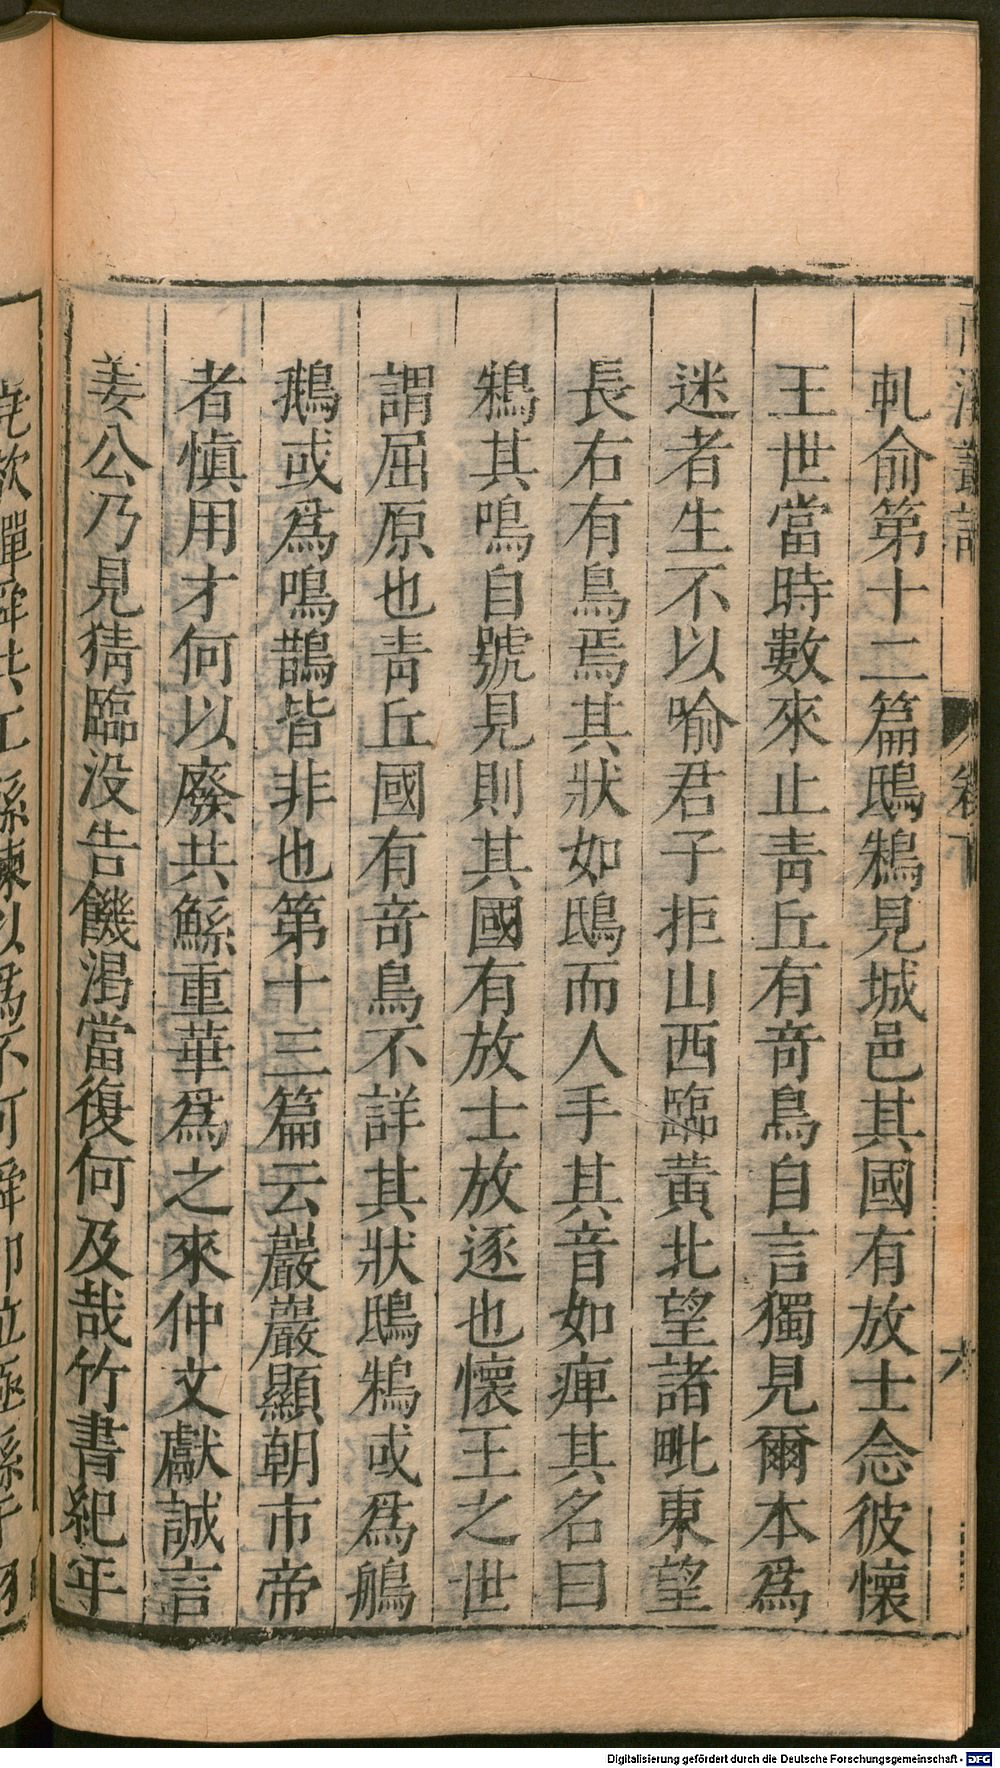 西溪叢語
卷下
六
軋俞第十二篇鴟鵂見城邑其國有放士念彼懷
王世當時數來止靑丘有奇鳥自言獨見爾本爲
迷者生不以喻君子拒山西臨黃北望諸毗東望
長右有鳥焉其狀如鴟而人手其音如痺其名曰
鴸其鳴自號見則其國有放士放逐也懷王之世
謂屈原也靑丘國有奇鳥不詳其狀鴟鴸或爲鵃
鵝或爲鳴鵲皆非也第十三篇云巖巖顯朝市帝
者愼用才何以廢共鯀重華爲之來仲文獻誠言
姜公乃見猜臨没告饑渴當復何及哉竹書紀年
Digitalisierung gefördert durch die Deutsche Forschungsgemeinschaft - DFG